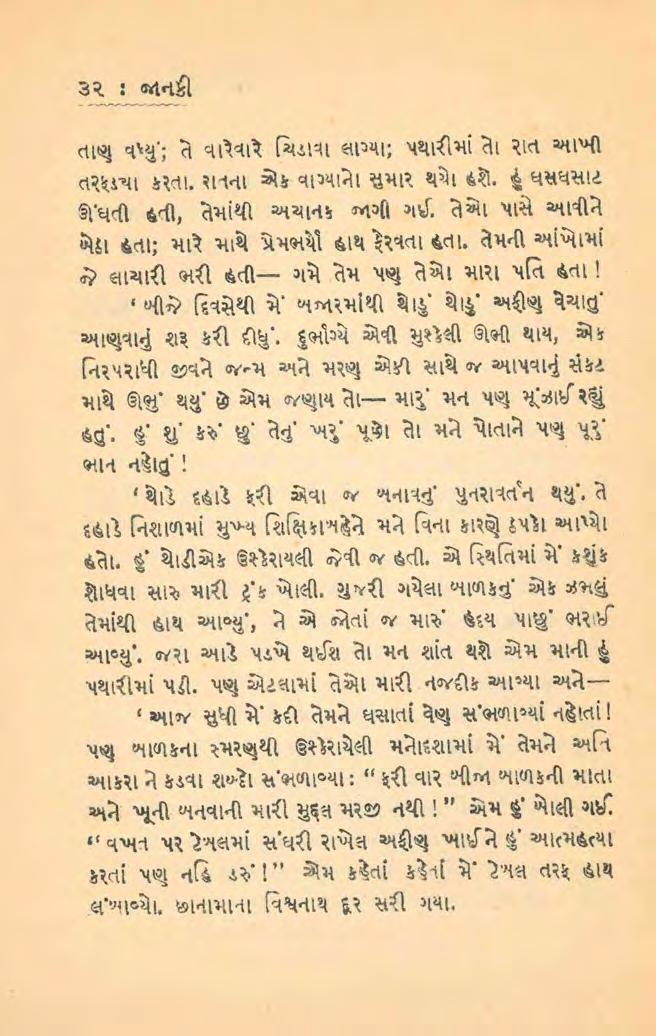 ૩૨ : જાનકી
તાણ વધ્યું; તે વારેવારે ચિડાવા લાગ્યા; પથારીમાં તો રાત આખી
તરફડ્યા કરતા. રાતના એક વાગ્યાનો સુમાર થયો હશે. હું ઘસઘસાટ
ઊંઘતી હતી, તેમાંથી અચાનક જાગી ગઈ. તેઓ પાસે આવીને
બેઠા હતા; મારે માથે પ્રેમભર્યો હાથ ફેરવતા હતા. તેમની આંખોમાં
જે લાચારી ભરી હતી— ગમે તેમ પણ તેઓ મારા પતિ હતા !
‘ બીજે દિવસેથી મેં બજારમાંથી થોડું થોડું અફીણ વેચાતું
આણવાનું શરૂ કરી દીધું. દુર્ભાગ્યે એવી મુશ્કેલી ઊભી થાય, એક
નિરપરાધી જીવને જન્મ અને મરણ એકી સાથે જ આપવાનું સંકટ
માથે ઊભું થયું છે એમ જણાય તો— મારું મન પણ મૂંઝાઈ રહ્યું
હતું. હું શું કરું છું તેનું ખરું પૂછો તો મને પોતાને પણ પૂરું
ભાન નહોતું !
‘ થોડે દહાડે ફરી એવા જ બનાવનું પુનરાવર્તન થયું. તે
દહાડે નિશાળમાં મુખ્ય શિક્ષિકાબહેને મને વિના કારણે ઠપકો આપ્યો
હતો. હું થોડીએક ઉશ્કેરાયલી જેવી જ હતી. એ સ્થિતિમાં મેં કશુંક
શોધવા સારુ મારી ટ્રંક ખોલી. ગુજરી ગયેલા બાળકનું એક ઝબલું
તેમાંથી હાથ આવ્યું, ને એ જોતાં જ મારું હૃદય પાછું ભરાઈ
આવ્યું. જરા આડે પડખે થઈશ તો મન શાંત થશે એમ માની હું
પથારીમાં પડી. પણ એટલામાં તેઓ મારી નજદીક આવ્યા અને—
‘ આજ સુધી મેં કદી તેમને ઘસાતાં વેણ સંભળાવ્યાં નહોતાં !
પણ બાળકના સ્મરણથી ઉશ્કેરાયેલી મનોદશામાં મેં તેમને અતિ
આકરા ને કડવા શબ્દો સંભળાવ્યા : “ ફરી વાર બીજા બાળકની માતા
અને ખૂની બનવાની મારી મુદ્દલ મરજી નથી ! ” એમ હું બોલી ગઈ.
“ વખત પર ટેબલમાં સંઘરી રાખેલ અફીણ ખાઈને હું આત્મહત્યા
કરતાં પણ નહિ ડરું ! ” એમ કહેતાં કહેતાં મેં ટેબલ તરફ હાથ
લંબાવ્યો. છાનામાના વિશ્વનાથ દૂર સરી ગયા.